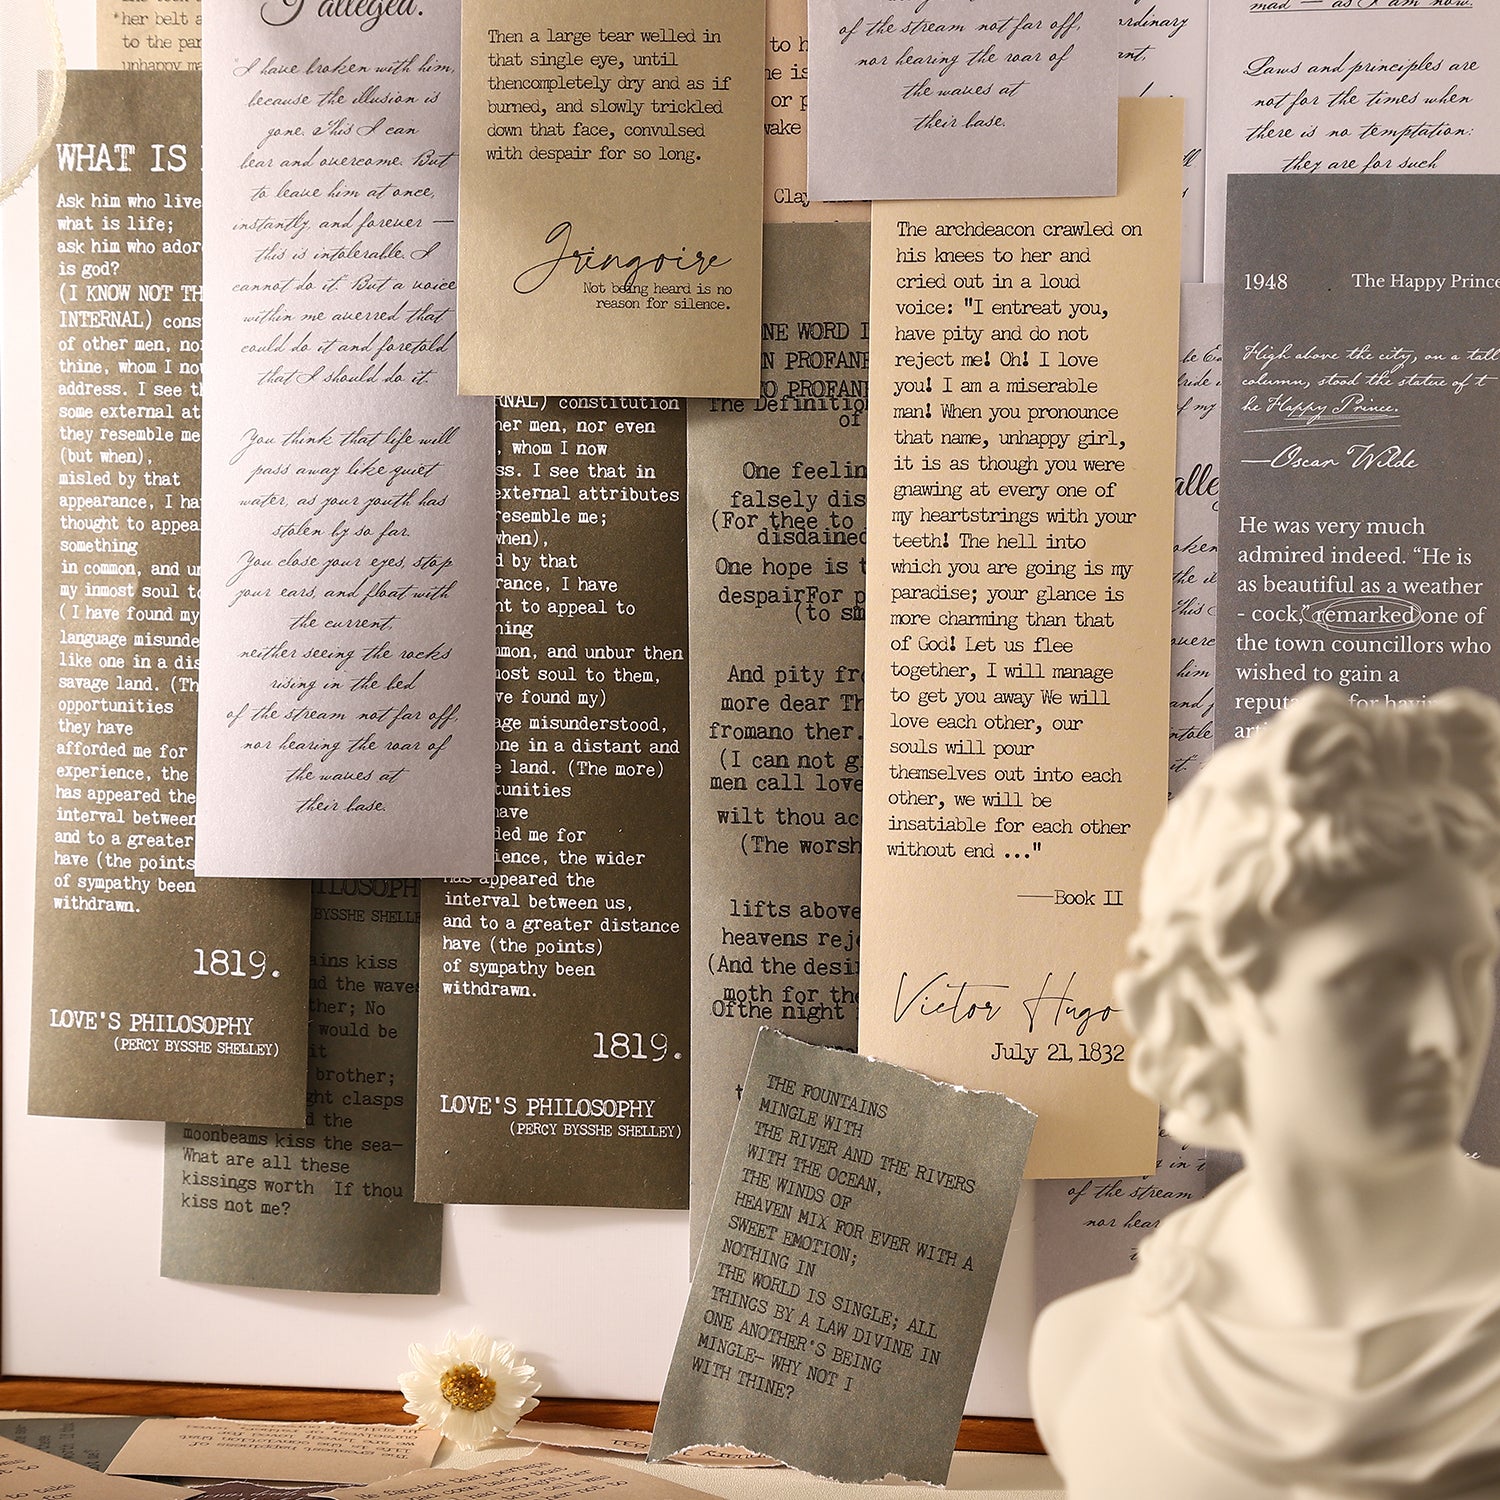 her belt a
to the par
unhappy ma
WHAT IS
Ask him who live
what is life;
ask him who ador
is god?
(I KNOW NOT TH
INTERNAL) cons
of other men, no
thine, whom I now
address. I see th
some external at
they resemble me
(but when),
misled by that
appearance, I ha
thought to appeal
something
in common, and un
my inmost soul to
(I have found my
language misunde
like one in a dis
savage land. (Th
opportunities
they have
afforded me for
experience, the
has appeared the
interval between
and to a greater
have (the points
of sympathy been
withdrawn.
1819.
LOVE'S PHILOSOPHY
(PERCY BYSSHE SHELLEY)
I alleged.
"I have broken with him,
because the illusion is
gone. This I can
bear and overcome. But
to leave him at once,
instantly and forever —
this is intolerable. I
cannot do it. But a voice
within me averred that
could do it and foretold
that I should do it.
You think that life will
pass away like quiet
water, as your youth has
stolen by so far.
You close your eyes, stop
your ears, and float with
the current,
neither seeing the rocks
rising in the bed
of the stream not far off,
nor hearing the roar of
the waves at
their base.
ILOSOPH
BYSSHE SHELLE
ains kiss
nd the waves
ther; No
would be
it
brother;
ght clasps
d the
moonbeams kiss the sea—
What are all these
kissings worth If thou
kiss not me?
Then a large tear welled in
that single eye, until
thencompletely dry and as if
burned, and slowly trickled
down that face, convulsed
with despair for so long.
Gringoire
Not being heard is no
reason for silence.
RNAL) constitution
her men, nor even
, whom I now
ss. I see that in
external attributes
resemble me;
when),
d by that
rance, I have
ht to appeal to
hing
mmon, and unbur then
most soul to them,
ve found my)
age misunderstood,
one in a distant and
e land. (The more)
tunities
have
ded me for
ience, the wider
has appeared the
interval between us,
and to a greater distance
have (the points)
of sympathy been
withdrawn.
1819.
LOVE'S PHILOSOPHY
(PERCY BYSSHE SHELLEY)
to h
he is
or p
wake
Clay
NE WORD I
N PROFANE
O PROFANE
The Definition
of
One feelin
falsely dis
(For thee to
disdained
One hope is t
despairFor p
(to sm
And pity fr
more dear Th
fromano ther.
(I can not g
men call love
wilt thou ac
(The worsh
lifts above
heavens reje
(And the desi
moth for the
Ofthe night
of the stream not far off,
nor hearing the roar of
the waves at
their base.
The archdeacon crawled on
his knees to her and
cried out in a loud
voice: "I entreat you,
have pity and do not
reject me! Oh! I love
you! I am a miserable
man! When you pronounce
that name, unhappy girl,
it is as though you were
gnawing at every one of
my heartstrings with your
teeth! The hell into
which you are going is my
paradise; your glance is
more charming than that
of God! Let us flee
together, I will manage
to get you away We will
love each other, our
souls will pour
themselves out into each
other, we will be
insatiable for each other
without end ..."
——Book II
Victor Hugo
July 21,1832
THE FOUNTAINS
MINGLE WITH
THE RIVER AND THE RIVERS
WITH THE OCEAN,
THE WINDS OF
HEAVEN MIX FOR EVER WITH A
SWEET EMOTION;
NOTHING IN
THE WORLD IS SINGLE; ALL
THINGS BY A LAW DIVINE IN
ONE ANOTHER'S BEING
MINGLE— WHY NOT I
WITH THINE?
rdinary
nt,
mad — as I am now.
Laws and principles are
not for the times when
there is no temptation:
they are for such
1948 The Happy Prince
High above the city, on a tall
column, stood the statue of t
he Happy Prince.
—Oscar Wilde
He was very much
admired indeed. “He is
as beautiful as a weather
- cock,” remarked one of
the town councillors who
wished to gain a
reputa for having
art
alle
of the stream
nor hear